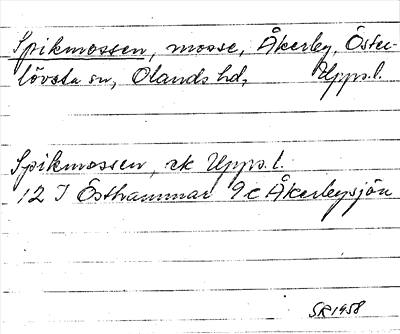 Spikmossen, mosse, Åkerley, Öster-
lövsta sn, Olands hd, Upps.l.
Spikmossen, ek Upps.l.
12 I Östhammar 9c Åkerleysjön
SR 1958